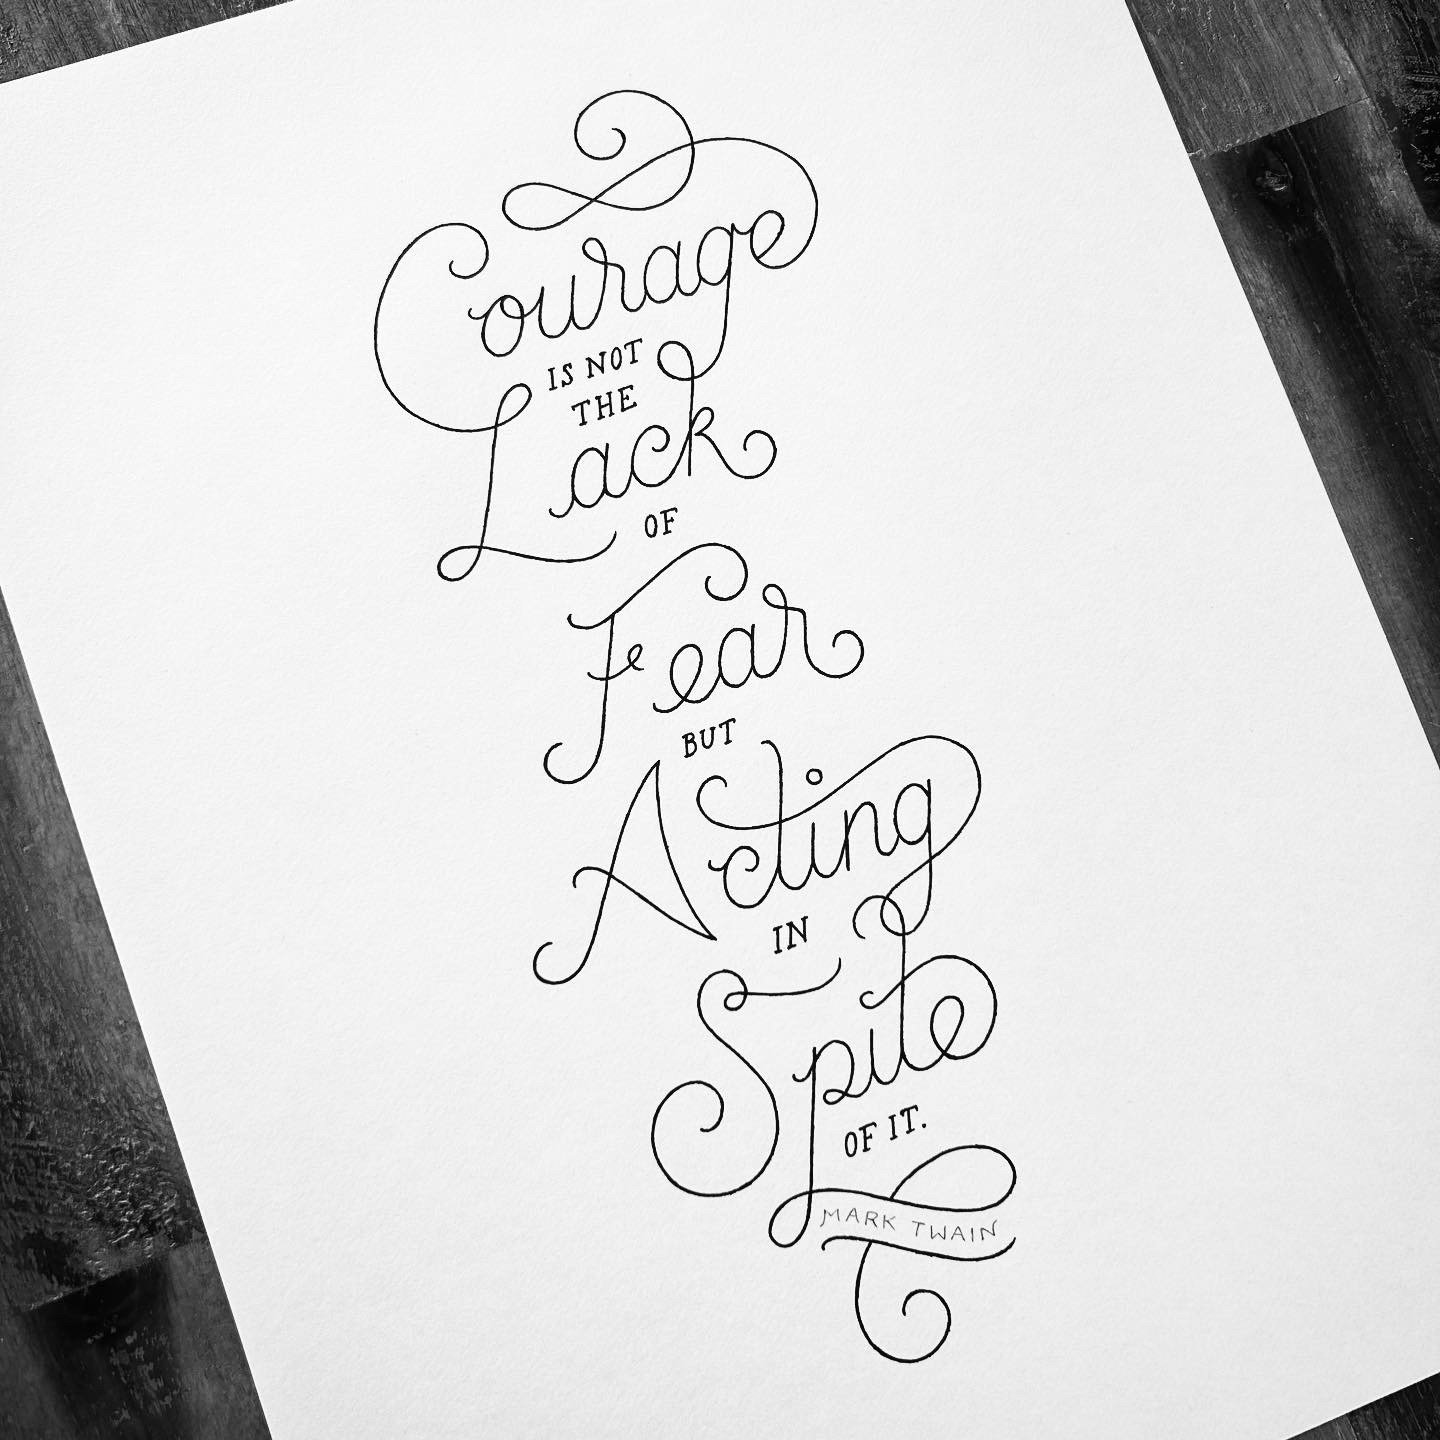 Courage
IS NOT
THE
Lack
OF
Fear
BUT
Acting
IN
Spite
OF IT.
MARK TWAIN